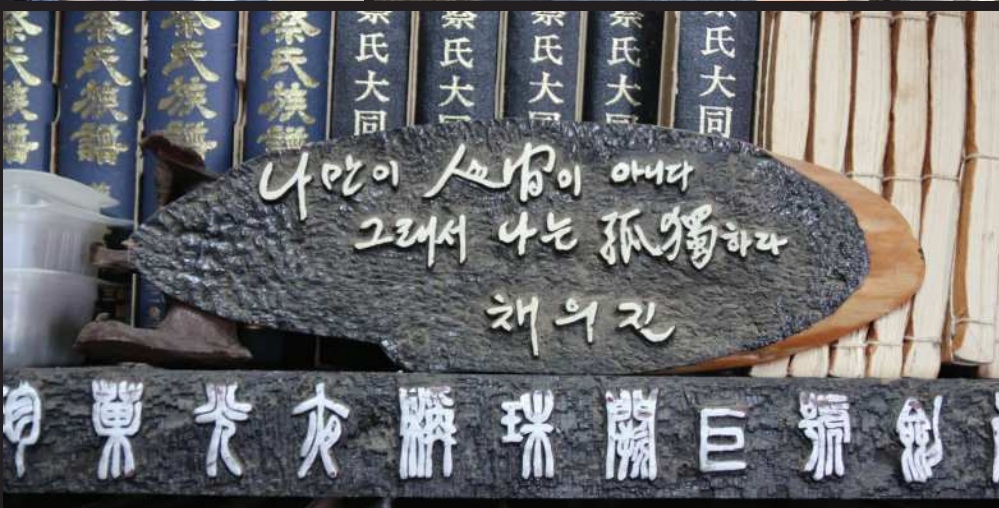 蔡氏族譜
蔡氏族譜
蔡氏族譜
蔡氏族譜
蔡氏大同
蔡氏大
蔡氏大同
蔡氏大同
蔡氏大同
나만이 人間이 아니다
그래서 나는 孤獨하다
채의진
劍號巨闕珠稱夜光菓